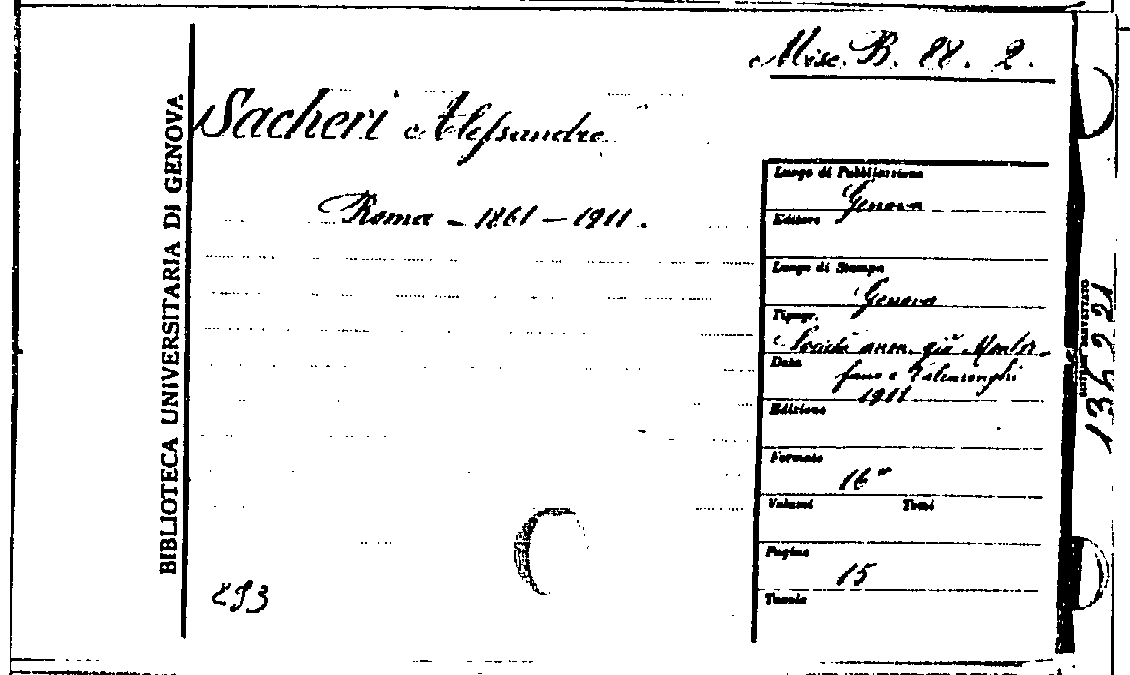 Misc. B. 88. 2.
Sacheri Alessandro
Roma - 1861 - 1911.
BIBLIOTECA UNIVERSITARIA DI GENOVA
Luogo di Pubblicazione
Genova
Editore
Luogo di Stampa
Genova
Tipogr.
Società anon. già Montor-
fano e Valcarenghi
Data
1911
Edizione
Formato
16°
Volumi Tomi
Pagine
15
Tavole
293
136221